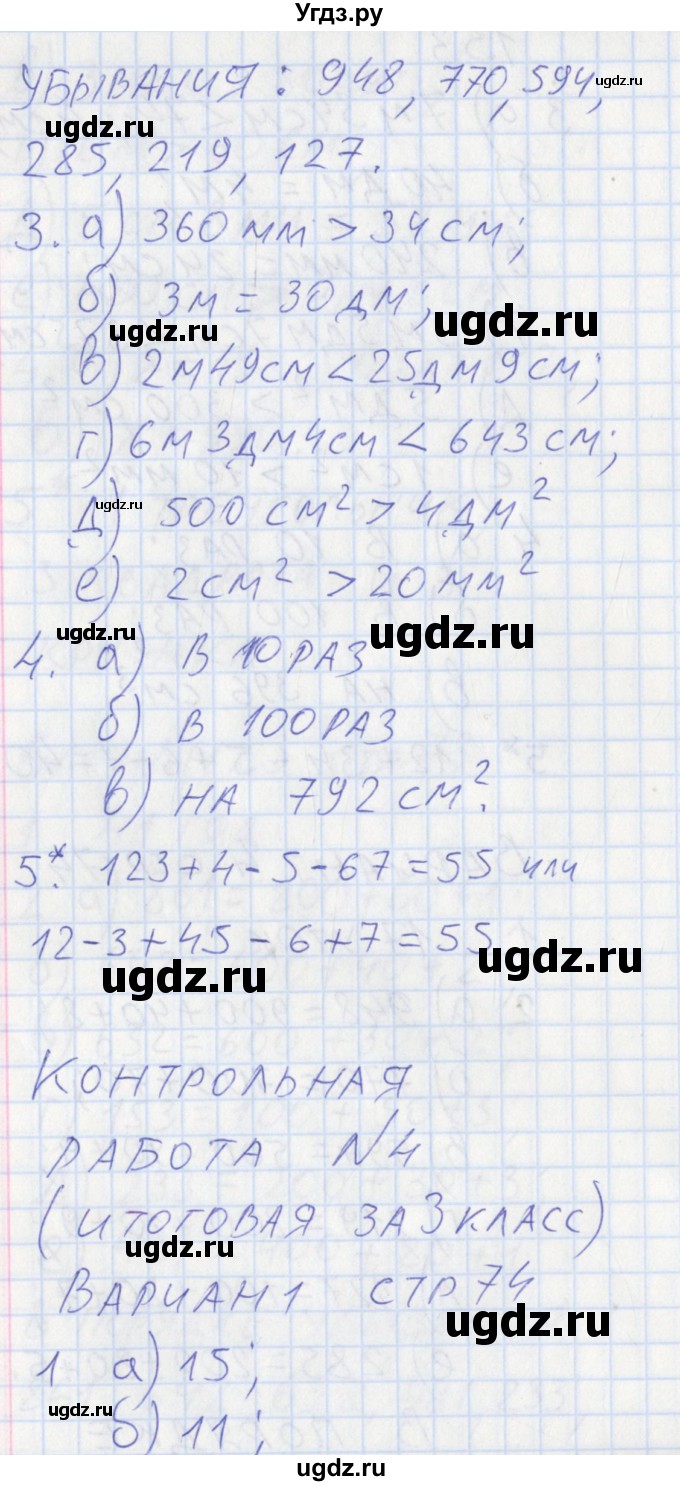 Угдз.ру
УБЫВАНИЯ: 948, 770, 594,
ugdz.ru
ugdz.ru
285, 219, 127.
3. а) 360 мм > 34 см;
б) 3м = 30 дм;
ugdz.ru
ugdz.ru
в) 2м49см < 25дм9см;
г) 6м 3дм4см < 643 см;
д) 500 см² > 4 дм²
ugdz.ru
е) 2 см² > 20 мм²
ugdz.ru
ugdz.ru
4. а) В 10 РАЗ
б) В 100 РАЗ
в) НА 792 см².
5*. 123+4-5-67=55 или
12-3+45-6+7=55
ugdz.ru
ugdz.ru
КОНТРОЛЬНАЯ
РАБОТА №4
(ИТОГОВАЯ ЗА 3 КЛАСС)
ugdz.ru
ВАРИАН1 СТР 74
ugdz.ru
1 а) 15;
ugdz.ru
б) 11;
ugdz.ru